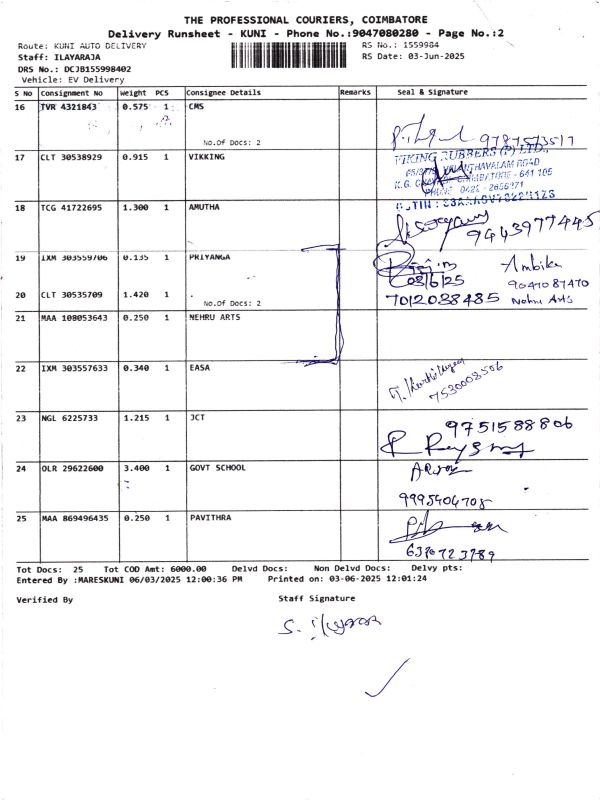 THE PROFESSIONAL COURIERS, COIMBATORE
Delivery Runsheet - KUNI - Phone No.:9047080280 - Page No.:2
Route: KUNI AUTO DELIVERY RS No.: 1559984
Staff: ILAYARAJA RS Date: 03-Jun-2025
DRS No.: DCJB155998402
Vehicle: EV Delivery
S No Consignment No Weight PCS Consignee Details Remarks Seal & Signature
16 TVR 4321843 0.575 1 CMS
No.Of Docs: 2 9787573517
17 CLT 30538929 0.915 1 VIKKING
VIKING RUBBERS (P) LTD.,
COIMBATORE - 641 105
18 TCG 41722695 1.300 1 AMUTHA
9443977445
19 IXM 303559706 0.135 1 PRIYANGA
Ambika
03/6/25 9047087470
20 CLT 30535709 1.420 1
No.Of Docs: 2 7012038485 Nehru Arts
21 MAA 108053643 0.250 1 NEHRU ARTS
22 IXM 303557633 0.340 1 EASA
7530002506
23 NGL 6225733 1.215 1 JCT
9751588806
24 OLR 29622600 3.400 1 GOVT SCHOOL
9995404705
25 MAA 869496435 0.250 1 PAVITHRA
6370723789
Tot Docs: 25 Tot COD Amt: 6000.00 Delvd Docs: Non Delvd Docs: Delvy pts:
Entered By :MARESKUNI 06/03/2025 12:00:36 PM Printed on: 03-06-2025 12:01:24
Verified By Staff Signature